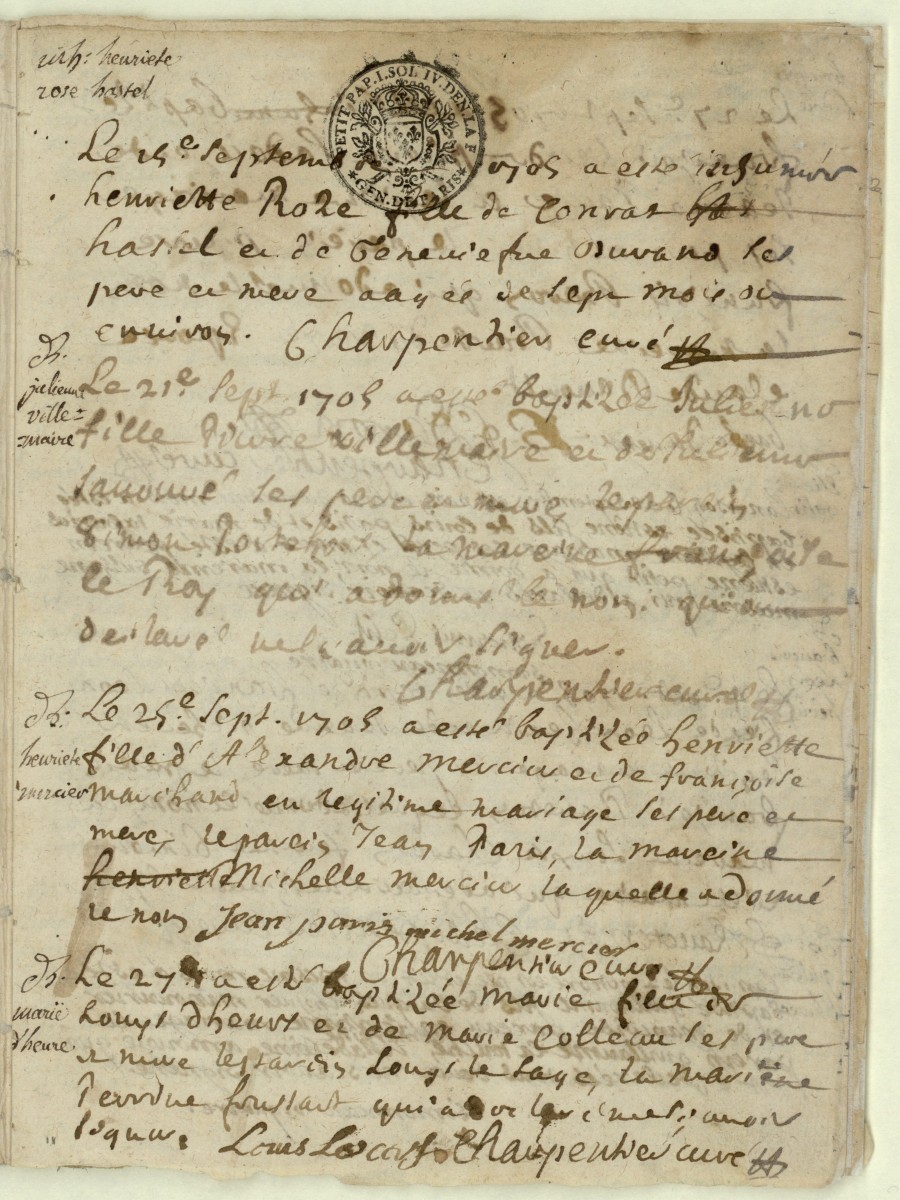 inh: henriete
rose hastel
PETIT PAP. I. SOL IV. DEN. LA F
GEN. DE PARIS
Le 15.e Septemb 1705 a esté inhumée
henriette Roze fille de Conrat
hastel et de Geneviefve Durand ses
pere et mere aagés de sept mois ou
environ. Charpentier curé
B.
julienne
ville=
maire
Le 21e Sept 1705 a esté baptizée Julienne
fille Pierre Villemaire et de
ses pere et mere le parein
Simon la mareine
le Roy qui a donné le nom qui a
declaré ne scavoir signer.
Charpentier curé
B.
henriete
mercier
Le 25.e Sept. 1705 a esté baptizée henriette
fille d'Alexandre mercier et de françoise
marchand en legitime mariage ses pere et
mere, le parein Jean Paris, la mareine
henriette Michelle mercier laquelle a donné
le nom Jean paris michel mercier
Charpentier curé
B.
marie
d'heure
Le 27e a esté baptizée marie fille de
Louys dheure et de marie Colleau ses pere
et mere le parein Louys le sage, la mareine
Perrine qui a declaré ne scavoir
signer. Louis Charpentier curé